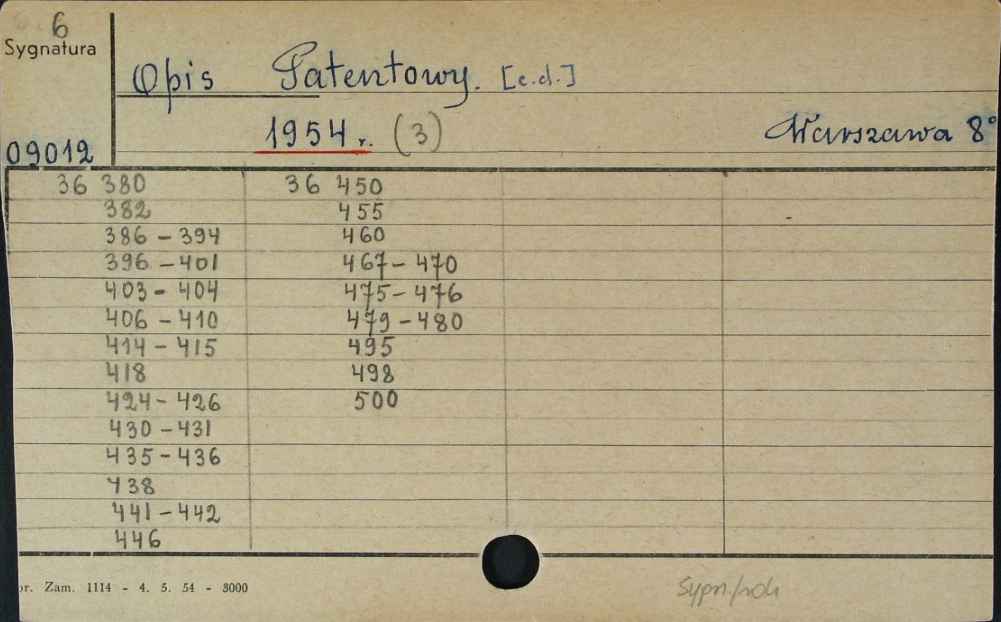 6
Sygnatura
Opis Patentowy. [c.d.]
1954 r. (3)
Warszawa 8°
09012
36 380
382
386 - 394
396 - 401
403 - 404
406 - 410
414 - 415
418
424 - 426
430 - 431
435 - 436
438
441 - 442
446
36 450
455
460
467 - 470
475 - 476
479 - 480
495
498
500
Zam. 1114 - 4. 5. 54 - 8000